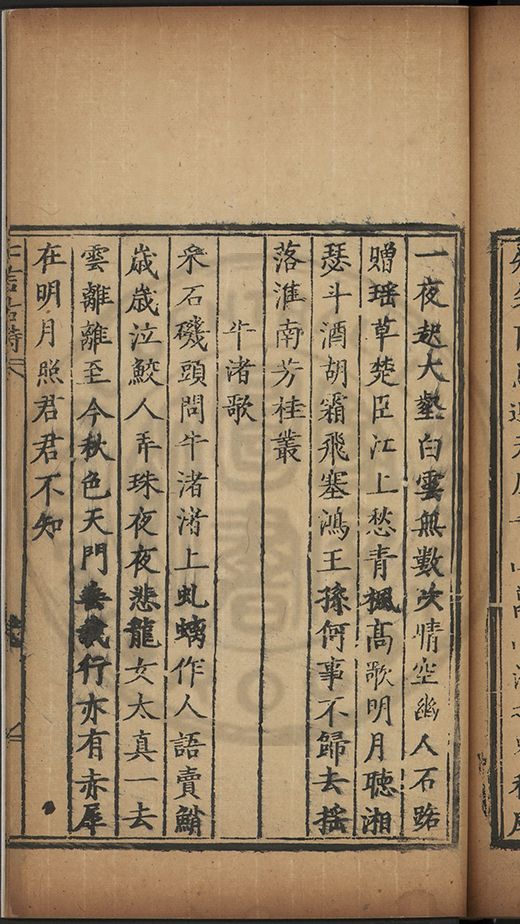 一夜起大壑白雲無數吹晴空幽人石路
贈瑶草楚臣江上愁青楓高歌明月聴湘
瑟斗酒胡霜飛塞鴻王孫何事不歸去揺
落淮南芳桂叢
牛渚歌
采石磯頭問牛渚渚上虬螭作人語賣鮹
歳歳泣鮫人弄珠夜夜悲龍女太真一去
雲離離至今秋色天門行亦有赤犀
在明月照君君不知